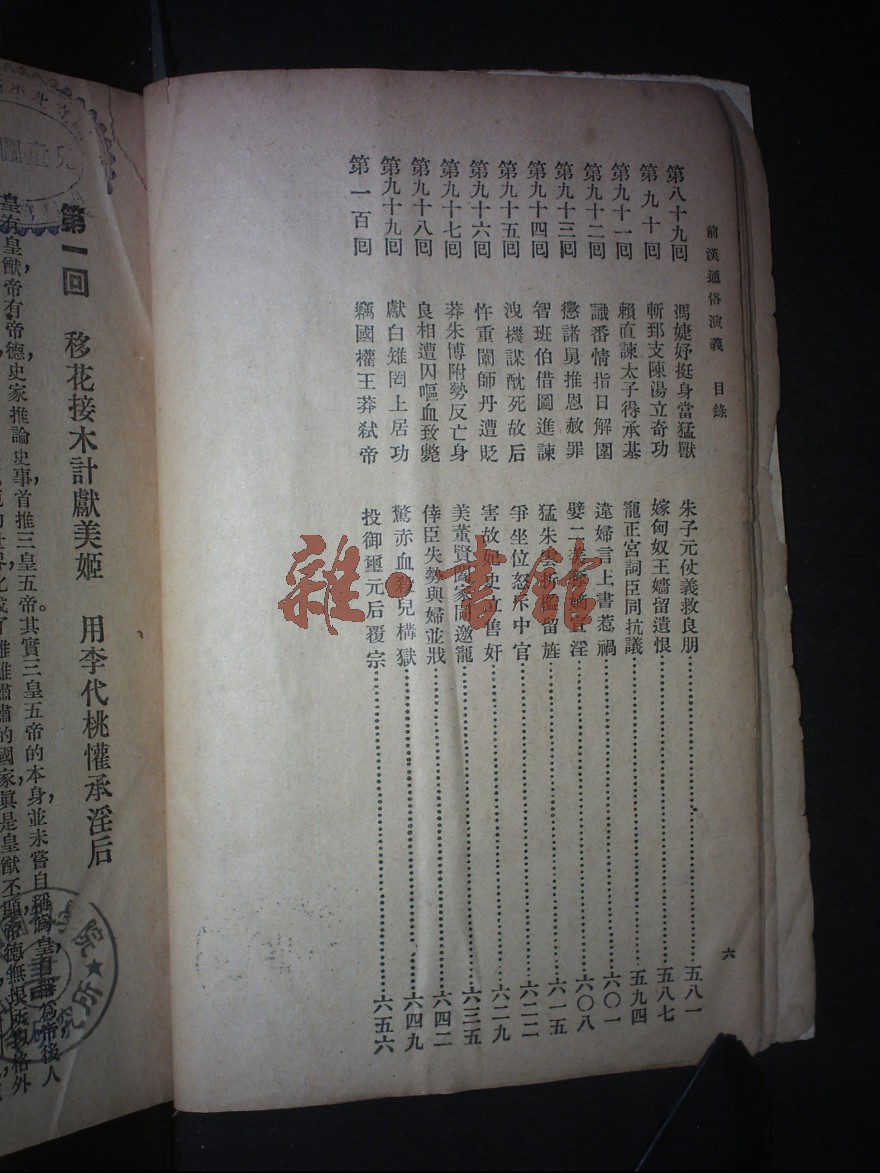 前漢通俗演義　目錄
第八十九回　馮婕妤挺身當猛獸　朱子元仗義救良朋……五八一
第九十回　斬郅支陳湯立奇功　嫁匈奴王嬙留遺恨……五八七
第九十一回　賴直諫太子得承基　寵正宮詞臣同抗議……五九四
第九十二回　識番情指日解圍　違婦言上書惹禍……六〇一
第九十三回　懲諸舅推恩赦罪　嬖二美　宣淫……六〇八
第九十四回　智班伯借圖進諫　猛朱雲折檻留旌……六一五
第九十五回　洩機謀酖死故后　爭坐位怒斥中官……六二二
第九十六回　忤重闈師丹遭貶　害故妃史立售奸……六二九
第九十七回　莽朱博附勢反亡身　美董賢闔家同邀寵……六三五
第九十八回　良相遭囚嘔血致斃　倖臣失勢與婦並戕……六四二
第九十九回　獻白雉罔上居功　驚赤血殺兒構獄……六四九
第一百回　竊國權王莽弒帝　投御璽元后覆宗……六五六
六
雜·書館
第一回　移花接木計獻美姬　用李代桃懽承淫后
皇有皇猷，帝有帝德，史家推論史事，首推三皇五帝。其實三皇五帝的本身，並未嘗自稱爲皇，自稱爲帝，後人